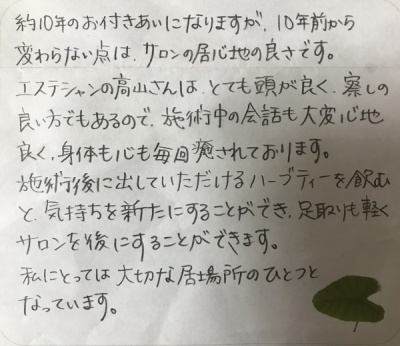 約10年のお付きあいになりますが、10年前から
変わらない点は、サロンの居心地の良さです。
エステシャンの高山さんは、とても頭が良く、察しの
良い方でもあるので、施術中の会話も大変心地
良く、身体も心も毎回癒されております。
施術後に出していただけるハーブティーを飲む
と、気持ちを新たにすることができ、足取りも軽く
サロンを後にすることができます。
私にとっては大切な居場所のひとつと
なっています。